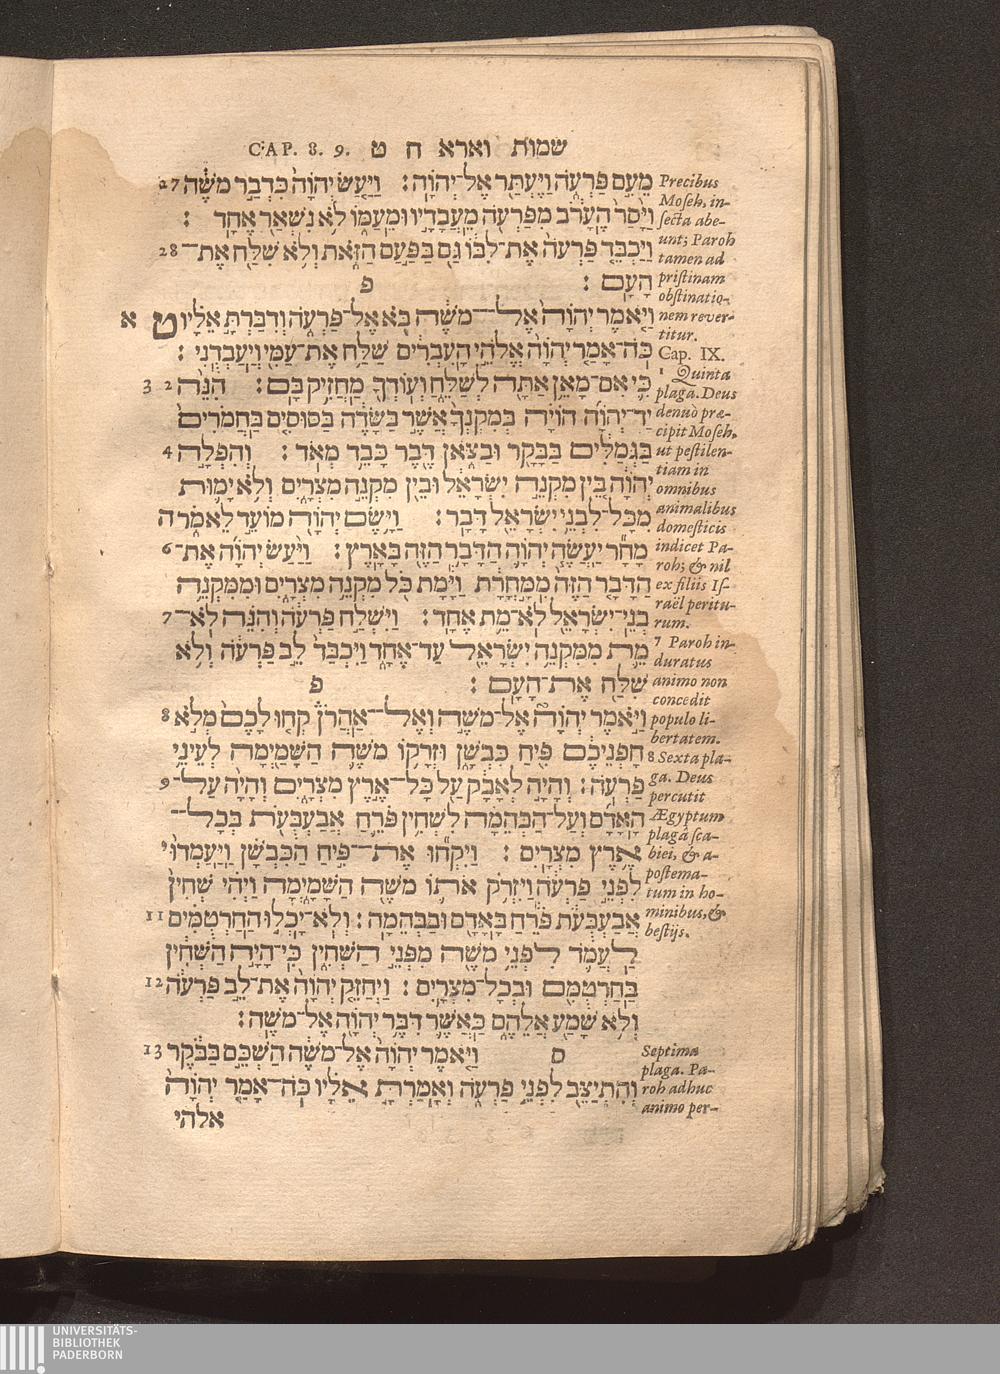 CAP. 8. 9. שמות וארא ח ט
מֵעִ֥ם פַּרְעֹ֖ה וַיֶּעְתַּ֥ר אֶל־יְהוָֹֽה׃ וַיַּ֤עַשׂ יְהוָֹה֙ כִּדְבַ֣ר מֹשֶׁ֔ה 27
וַיָּ֙סַר֙ הֶעָרֹ֔ב מִפַּרְעֹ֖ה מֵעֲבָדָ֣יו וּמֵעַמּ֑וֹ לֹ֥א נִשְׁאַ֖ר אֶחָֽד׃
וַיַּכְבֵּ֤ד פַּרְעֹה֙ אֶת־לִבּ֔וֹ גַּ֖ם בַּפַּ֣עַם הַזֹּ֑את וְלֹ֥א שִׁלַּ֖ח אֶת־ 28
הָעָֽם׃ פ
וַיֹּ֤אמֶר יְהוָֹה֙ אֶל־מֹשֶׁ֔ה בֹּ֖א אֶל־פַּרְעֹ֑ה וְדִבַּרְתָּ֣ אֵלָ֗יו ט א
כֹּֽה־אָמַ֤ר יְהוָֹה֙ אֱלֹהֵ֣י הָֽעִבְרִ֔ים שַׁלַּ֥ח אֶת־עַמִּ֖י וְיַֽעַבְדֻֽנִי׃
כִּ֛י אִם־מָאֵ֥ן אַתָּ֖ה לְשַׁלֵּ֑חַ וְעוֹדְךָ֖ מַחֲזִ֥יק בָּֽם׃ הִנֵּ֨ה 2 3
יַד־יְהוָֹ֜ה הוֹיָ֗ה בְּמִקְנְךָ֙ אֲשֶׁ֣ר בַּשָּׂדֶ֔ה בַּסּוּסִ֤ים בַּֽחֲמֹרִים֙
בַּגְּמַלִּ֔ים בַּבָּקָ֖ר וּבַצֹּ֑אן דֶּ֖בֶר כָּבֵ֥ד מְאֹֽד׃ וְהִפְלָ֣ה 4
יְהוָֹ֔ה בֵּ֚ין מִקְנֵ֣ה יִשְׂרָאֵ֔ל וּבֵ֖ין מִקְנֵ֣ה מִצְרָ֑יִם וְלֹ֥א יָמ֛וּת
מִכָּל־לִבְנֵ֥י יִשְׂרָאֵ֖ל דָּבָֽר׃ וַיָּ֥שֶׂם יְהוָֹ֖ה מוֹעֵ֣ד לֵאמֹ֑ר ה
מָחָ֗ר יַעֲשֶׂ֧ה יְהוָֹ֛ה הַדָּבָ֥ר הַזֶּ֖ה בָּאָֽרֶץ׃ וַיַּ֨עַשׂ יְהוָֹ֜ה אֶת־ 6
הַדָּבָ֤ר הַזֶּה֙ מִֽמָּחֳרָ֔ת וַיָּ֕מָת כֹּ֖ל מִקְנֵ֣ה מִצְרָ֑יִם וּמִמִּקְנֵ֥ה
בְנֵֽי־יִשְׂרָאֵ֖ל לֹא־מֵ֥ת אֶחָֽד׃ וַיִּשְׁלַ֣ח פַּרְעֹ֔ה וְהִנֵּ֗ה לֹא־ 7
מֵ֛ת מִמִּקְנֵ֥ה יִשְׂרָאֵ֖ל עַד־אֶחָ֑ד וַיִּכְבַּד֙ לֵ֣ב פַּרְעֹ֔ה וְלֹ֥א
שִׁלַּ֖ח אֶת־הָעָֽם׃ פ
וַיֹּ֣אמֶר יְהוָֹה֮ אֶל־מֹשֶׁ֣ה וְאֶֽל־אַהֲרֹן֒ קְח֤וּ לָכֶם֙ מְלֹ֣א 8
חָפְנֵיכֶ֔ם פִּ֖יחַ כִּבְשָׁ֑ן וּזְרָק֥וֹ מֹשֶׁ֛ה הַשָּׁמַ֖יְמָה לְעֵינֵ֥י
פַרְעֹֽה׃ וְהָיָ֣ה לְאָבָ֔ק עַ֖ל כָּל־אֶ֣רֶץ מִצְרָ֑יִם וְהָיָ֨ה עַל־ 9
הָאָדָ֜ם וְעַל־הַבְּהֵמָ֗ה לִשְׁחִ֥ין פֹּרֵ֛חַ אֲבַעְבֻּעֹ֖ת בְּכָל־
אֶ֥רֶץ מִצְרָֽיִם׃ וַיִּקְח֞וּ אֶת־פִּ֣יחַ הַכִּבְשָׁ֗ן וַיַּֽעַמְדוּ֙ י
לִפְנֵ֣י פַרְעֹ֔ה וַיִּזְרֹ֥ק אֹת֛וֹ מֹשֶׁ֖ה הַשָּׁמָ֑יְמָה וַיְהִ֗י שְׁחִין֙
אֲבַעְבֻּעֹ֔ת פֹּרֵ֕חַ בָּאָדָ֖ם וּבַבְּהֵמָֽה׃ וְלֹֽא־יָכְל֣וּ הַֽחַרְטֻמִּ֗ים 11
לַעֲמֹ֛ד לִפְנֵ֥י מֹשֶׁ֖ה מִפְּנֵ֣י הַשְּׁחִ֑ין כִּֽי־הָיָ֣ה הַשְּׁחִ֔ין
בַּֽחַרְטֻמִּ֖ם וּבְכָל־מִצְרָֽיִם׃ וַיְחַזֵּ֤ק יְהוָֹה֙ אֶת־לֵ֣ב פַּרְעֹ֔ה 12
וְלֹ֥א שָׁמַ֖ע אֲלֵהֶ֑ם כַּאֲשֶׁ֛ר דִּבֶּ֥ר יְהוָֹ֖ה אֶל־מֹשֶֽׁה׃
ס וַיֹּ֤אמֶר יְהוָֹה֙ אֶל־מֹשֶׁ֔ה הַשְׁכֵּ֣ם בַּבֹּ֔קֶר 13
וְהִתְיַצֵּ֖ב לִפְנֵ֣י פַרְעֹ֑ה וְאָמַרְתָּ֣ אֵלָ֗יו כֹּֽה־אָמַ֤ר יְהוָֹה֙
אלהי
Precibus
Moseh, in-
secta abe-
unt; Paroh
tamen ad
pristinam
obstinatio-
nem rever-
titur.
Cap. IX.
1 Quinta
plaga. Deus
denuò præ-
cipit Moseh,
ut pestilen-
tiam in
omnibus
animalibus
domesticis
indicet Pa-
roh; & nil
ex filiis Is-
raël peritu-
rum.
7 Paroh in-
duratus
animo non
concedit
populo li-
bertatem.
8 Sexta pla-
ga. Deus
percutit
Ægyptum
plagâ sca-
biei, & a-
postema-
tum in ho-
minibus, &
bestijs.
Septima
plaga. Pa-
roh adhuc
animo per-
UNIVERSITÄTS-
BIBLIOTHEK
PADERBORN